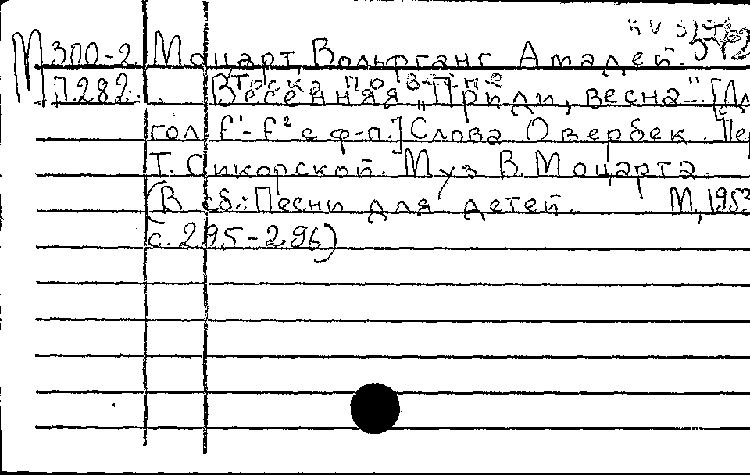 М ЗПО-2 Моцарт, Вольфганг Амадей.
П.282. Весенняя „Приди, весна" [Дл
гол f¹-f² с ф-п.] Слова Овербек. Пер
Т. Сикорской. Муз В. Моцарта.
(В сб.: Песни для детей. М, 1953
с. 295-296)